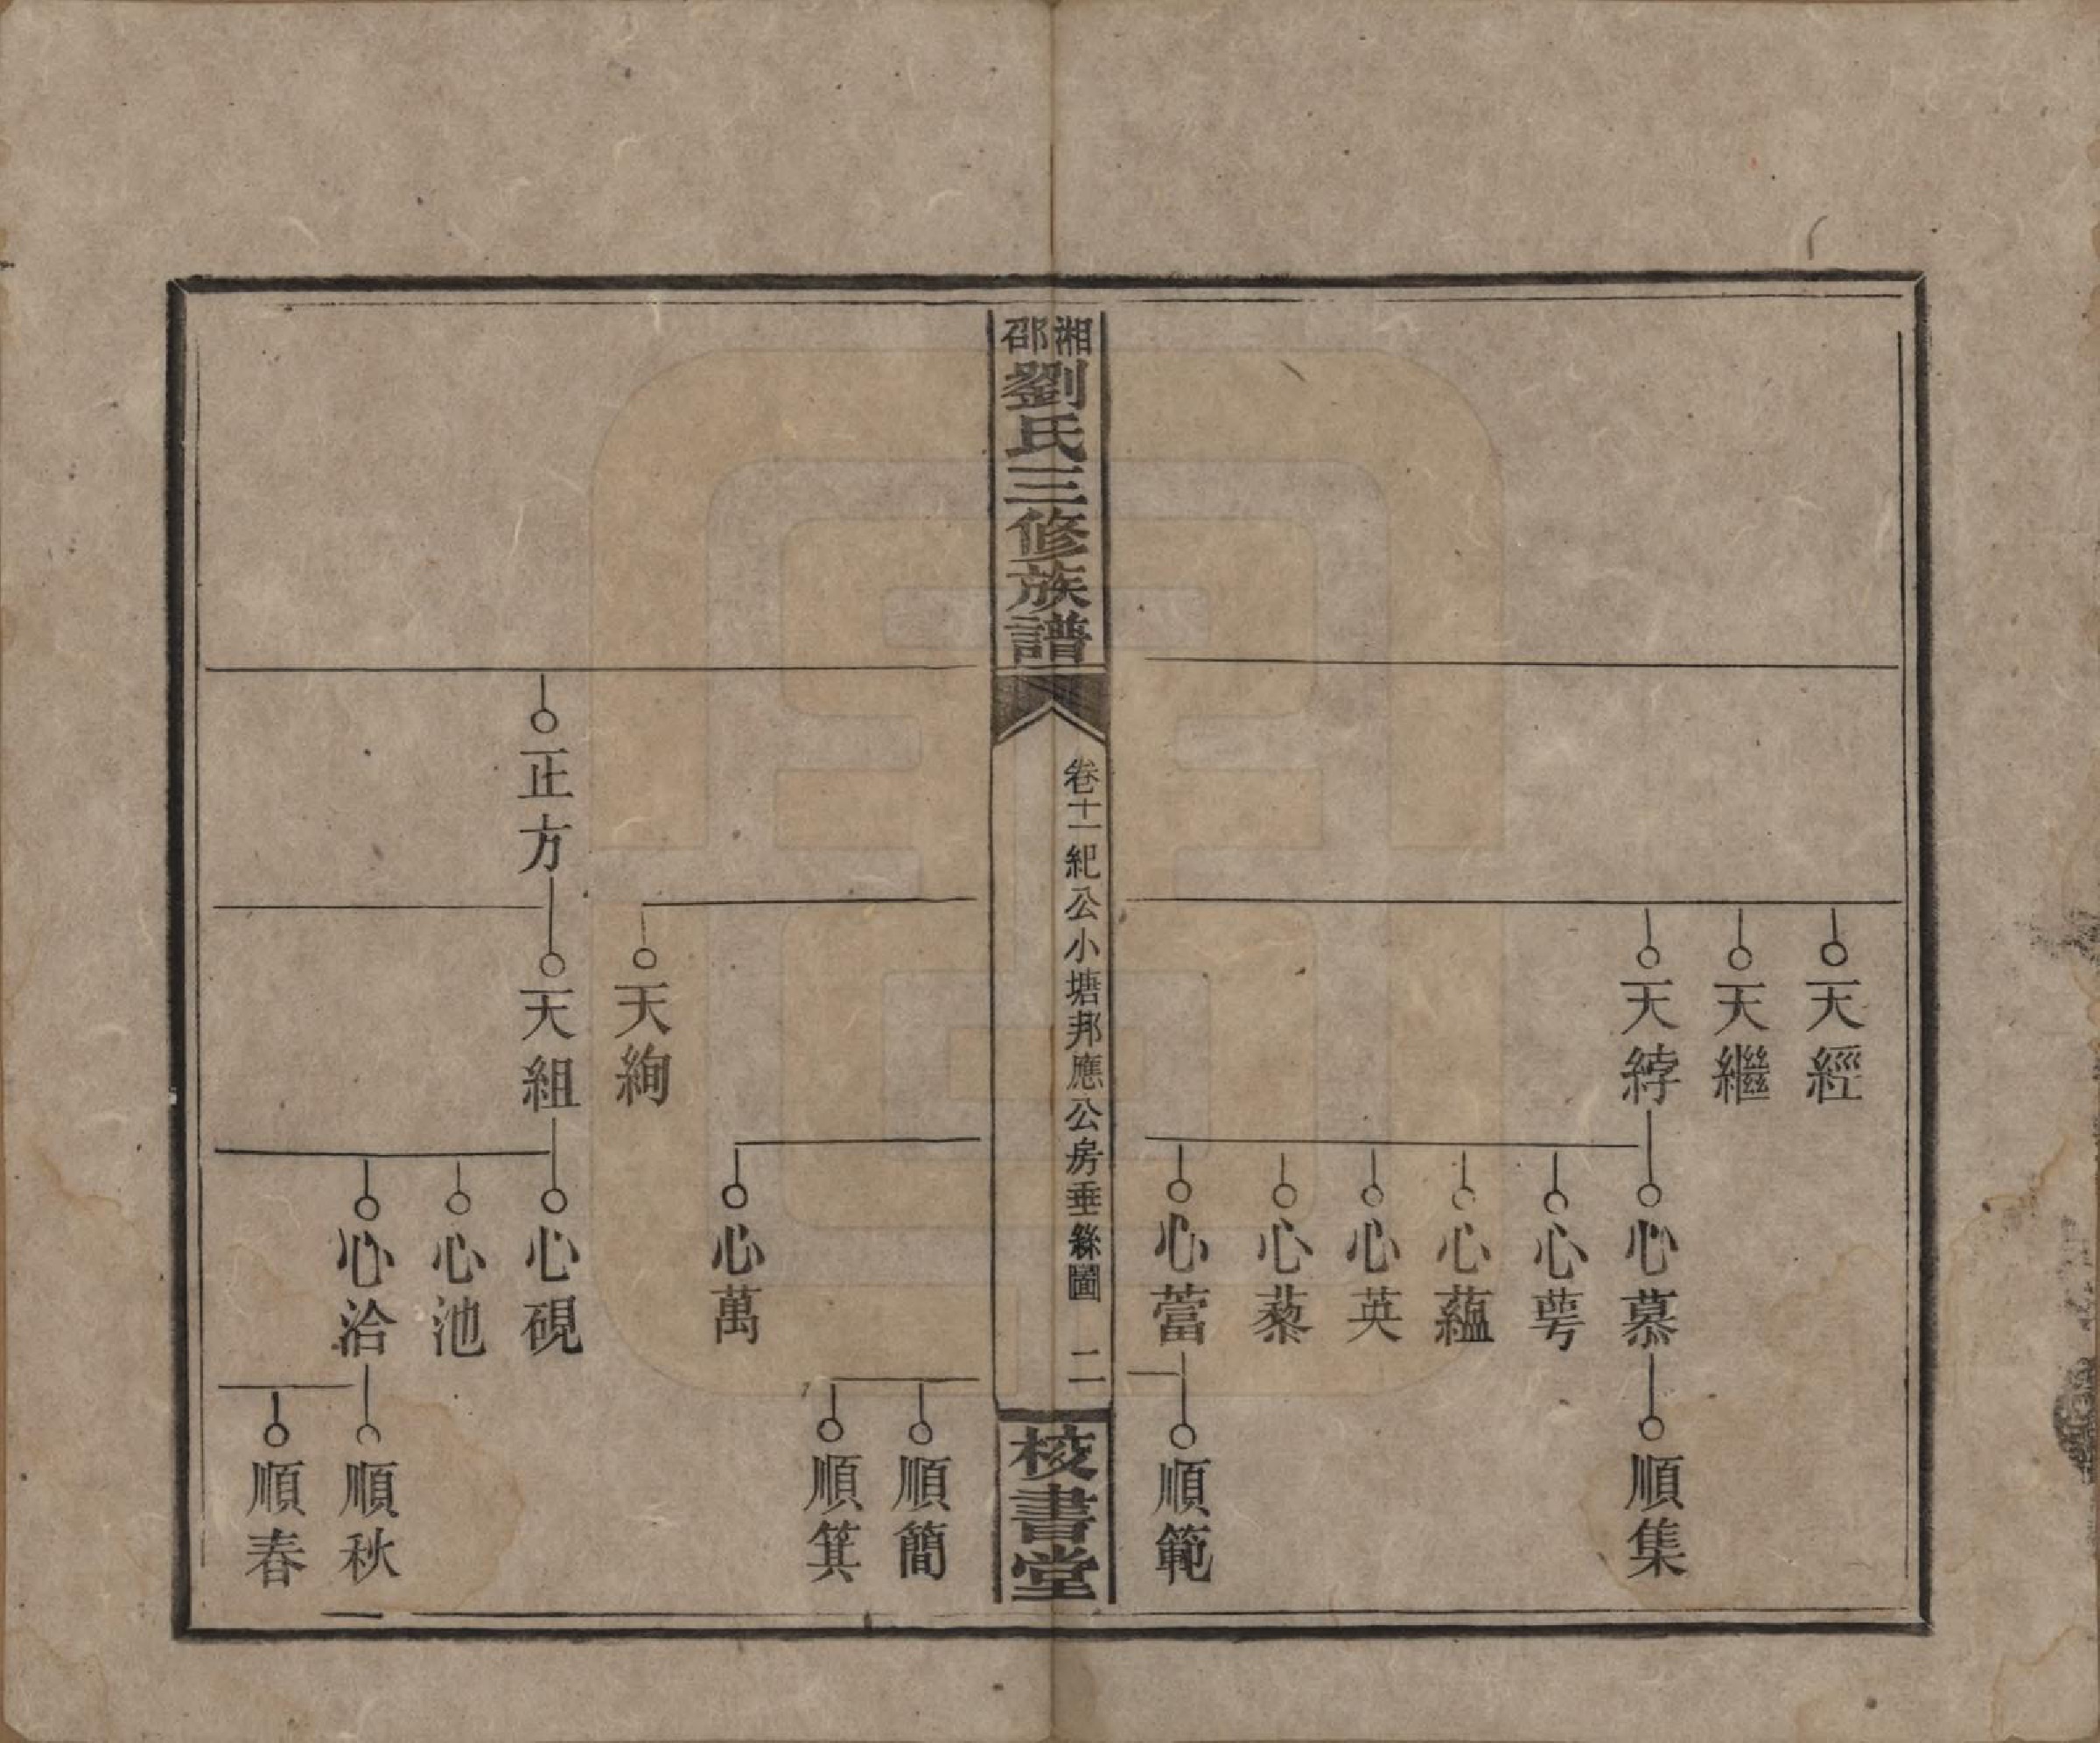 天經
天繼
天綍
心慕
順集
心萼
心蘊
心英
心藜
心蕾
順範
湘邵劉氏三修族譜
卷十一紀公小塘邦應公房垂絲圖 二
校書堂
順簡
順箕
心萬
天絢
正方
天組
心硯
心池
心洽
順秋
順春